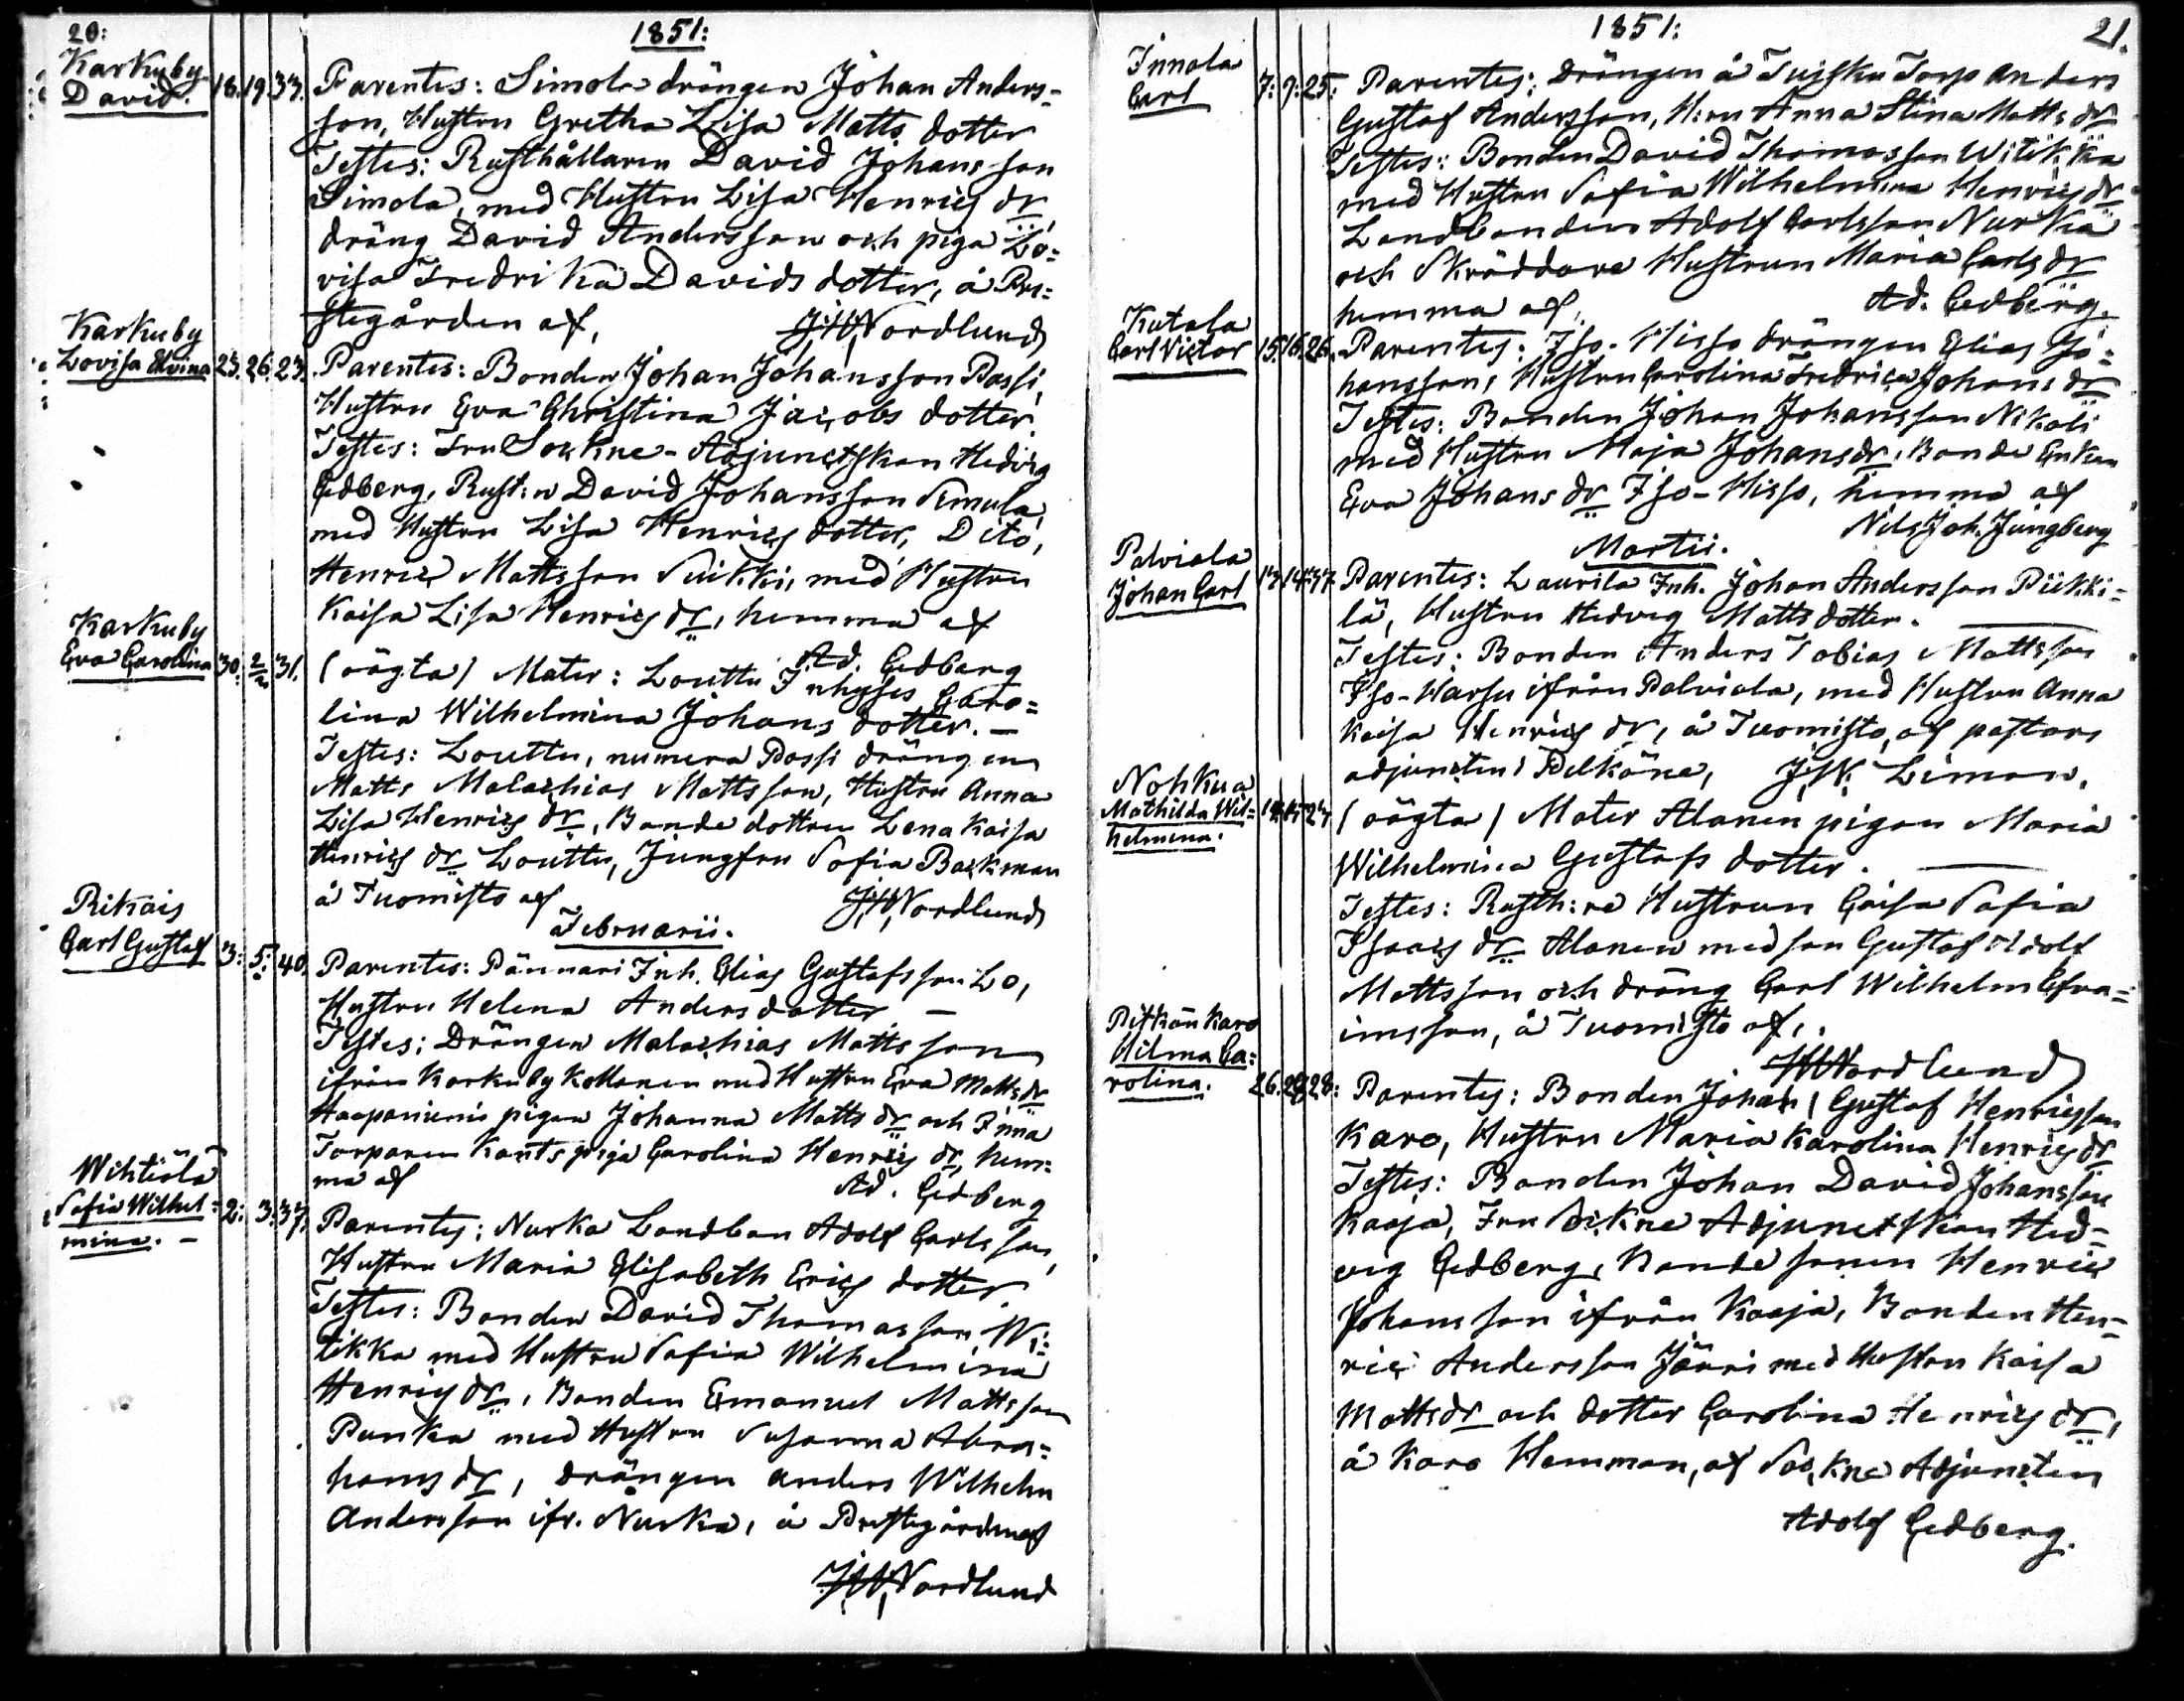 20:
1851:
Karkuby
David. 18. 19. 33. Parentes: Simola drängen Johan Anders=
son, Hustru Gretha Lisa Matts dotter
Testes: Rusthållaren David Johansson
Simola, med Hustru Lisa Henrics dr,
dräng David Andersson och piga Lo=
visa Fredrika Davids dotter, å Pre=
stegården af, JHNordlund
Karkuby
Lovisa Elvina 25. 26. 23. Parentes: Bonden Johan Johansson Passi,
Hustru Eva Christina Jacobs dotter
Testes: Fru Sockne-Adjunctskan Hedvig
Cedberg, Rust:n David Johansson Simula,
med Hustru Lisa Henrics dotter, Dito,
Henric Mattsson Suikki, med Hustru
Kaisa Lisa Henrics dr, hemma af
Ad. Cedberg
Karkuby
Eva Carolina 30. 2/2 31. (oägta) Mater: Louttu Inhyses Caro=
lina Wilhelmina Johans dotter. —
Testes: Louttu, numera Passi drängen
Matts Malachias Mattsson, Hustru Anna
Lisa Henrics dr, Bonde dottren Lena Kaisa
Henrics dr Louttu, Jungfru Sofia Backman
å Tuomisto af JHNordlund
Februarii.
Rikais
Carl Gustaf 3: 5: 40. Parentes: Pännäri Inh. Elias Gustafsson Lo,
Hustru Helena Anders dotter —
Testes: Drängen Malachias Mattsson
ifrån Karkuby Kollanen med Hustru Eva Matts dr
Haapaniemi pigan Johanna Matts dr och Inna
Torparen Kants piga Carolina Henrics dr, hem=
ma af Ad. Cedberg
Wihtiälä
Sofia Wilhel=
mina. — 2: 3: 37. Parentes: Nurka Landbon Adolf Carlsson,
Hustru Maria Elisabeth Erics dotter
Testes: Bonden David Thomasson Wi=
tikka med Hustru Sofia Wilhelmina
Henrics dr, Bonden Emanuel Mattsson
Punka med Hustru Susanna Abra=
hams dr, drängen Anders Wilhelm
Andersson ifr. Nurka, å Prestegården af
JHNordlund
1851:
21.
Innala
Carl 7: 9: 25: Parentes: Drängen å Tujsku Torp Anders
Gustaf Andersson, H:ru Anna Stina Matts dr
Testes: Bonden David Thomasson Witikka
med Hustru Sofia Wilhelmina Henrics dr
Landbonden Adolf Carlsson Nurka
och Skräddare Hustrun Maria Carls dr
hemma af, Ad. Cedberg.
Kutala
Carl Victor 15. 16. 26. Parentes: Iso-Hisso drängen Elias Jo=
hansson, Hustru Carolina Fredrica Johans dr
Testes: Bonden Johan Johansson Nikali
med Hustru Maja Johans dr, Bonde Enkan
Eva Johans dr Iso-Hisso, hemma af
Nils Joh. Jungberg
Martii.
Palviala
Johan Carl 13. 14. 37. Parentes: Laurila Inh. Johan Andersson Piikki=
lä, Hustru Hedvig Matts dotter. —
Testes: Bonden Anders Tobias Mattsson
Iso-Warsu ifrån Palviala, med Hustru Anna
Kaisa Henrics dr, å Tuomisto, af pastors
adjuncten i Pelkäne, J.W. Limon.
Nohkua
Mathilda Wil=
helmina. 14. 23. (oägta) Mater Alanen pigan Maria
Wilhelmina Gustafs dotter. —
Testes: Rusth:re Hustrun Caisa Sofia
Isaacs dr Alanen med son Gustaf Adolf
Mattsson och dräng Carl Wilhelm Efra=
imsson, å Tuomisto af,
JHNordlund
Pitkän Karo
Hilma Ca=
rolina. 26. 28: Parentes: Bonden Johan Gustaf Henricsson
Karo, Hustru Maria Karolina Henrics dr
Testes: Bonden Johan David Johansson
Kaaja, Fru Sockne Adjunctskan Hed=
vig Cedberg, Bonde sonen Henric
Johansson ifrån Kaaja, Bonden Hen=
ric Andersson Järri med Hustru Kaisa
Matts dr och dotter Carolina Henrics dr,
å Karo Hemman, af Sockne Adjuncten
Adolf Cedberg.